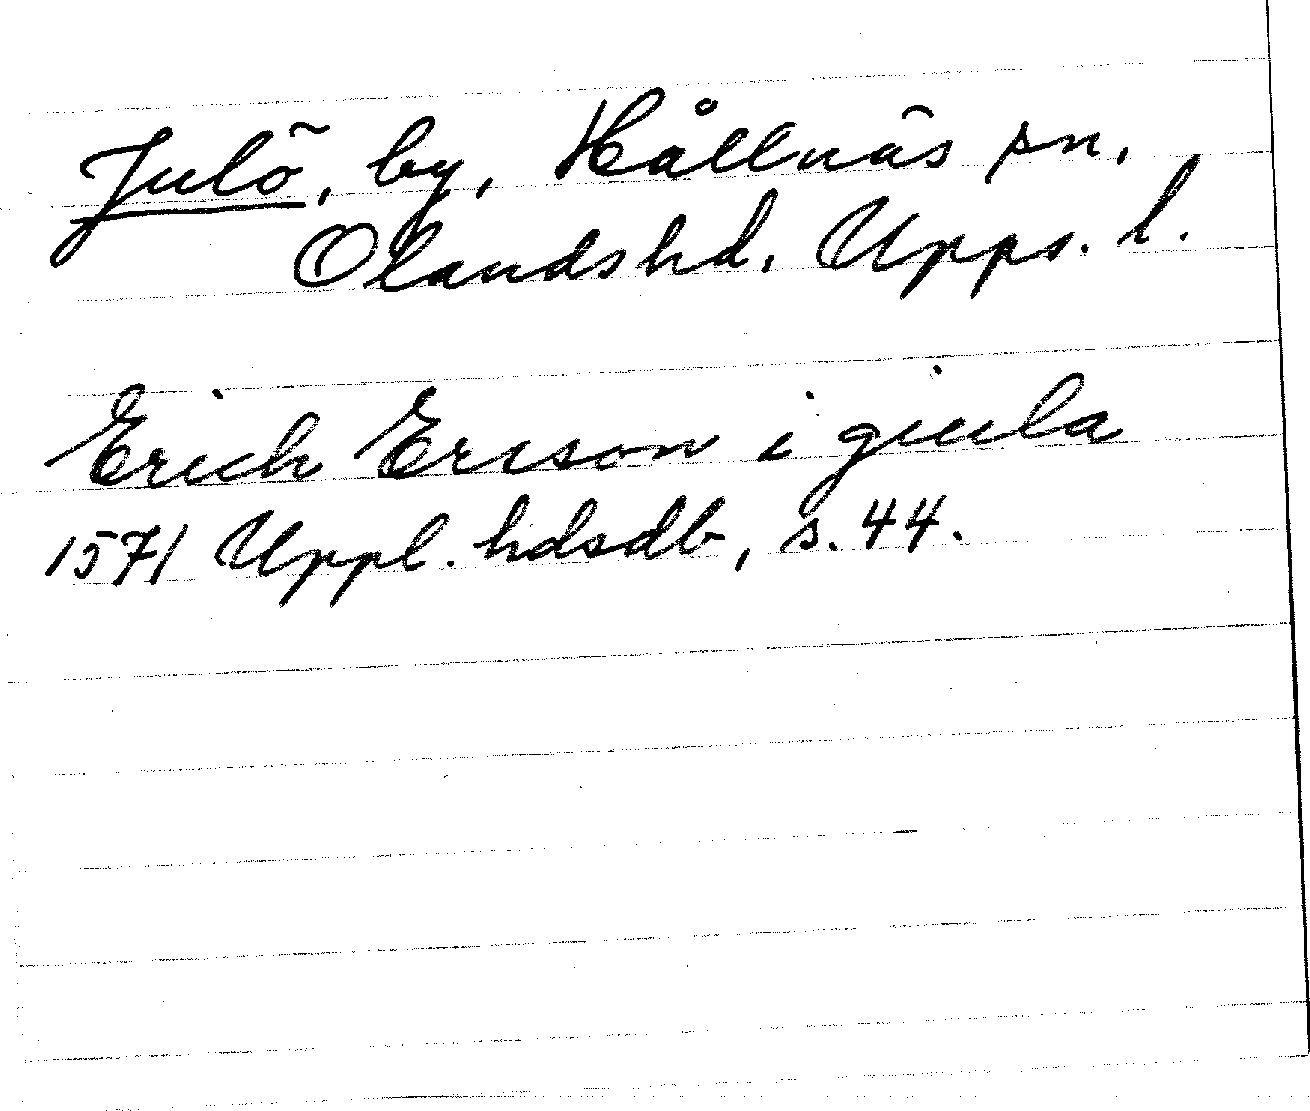 Julö, by, Hållnäs sn,
Olandshd, Upps. l.
Erich Ericson i giula
1571 Uppl. hdsdb, s. 44.